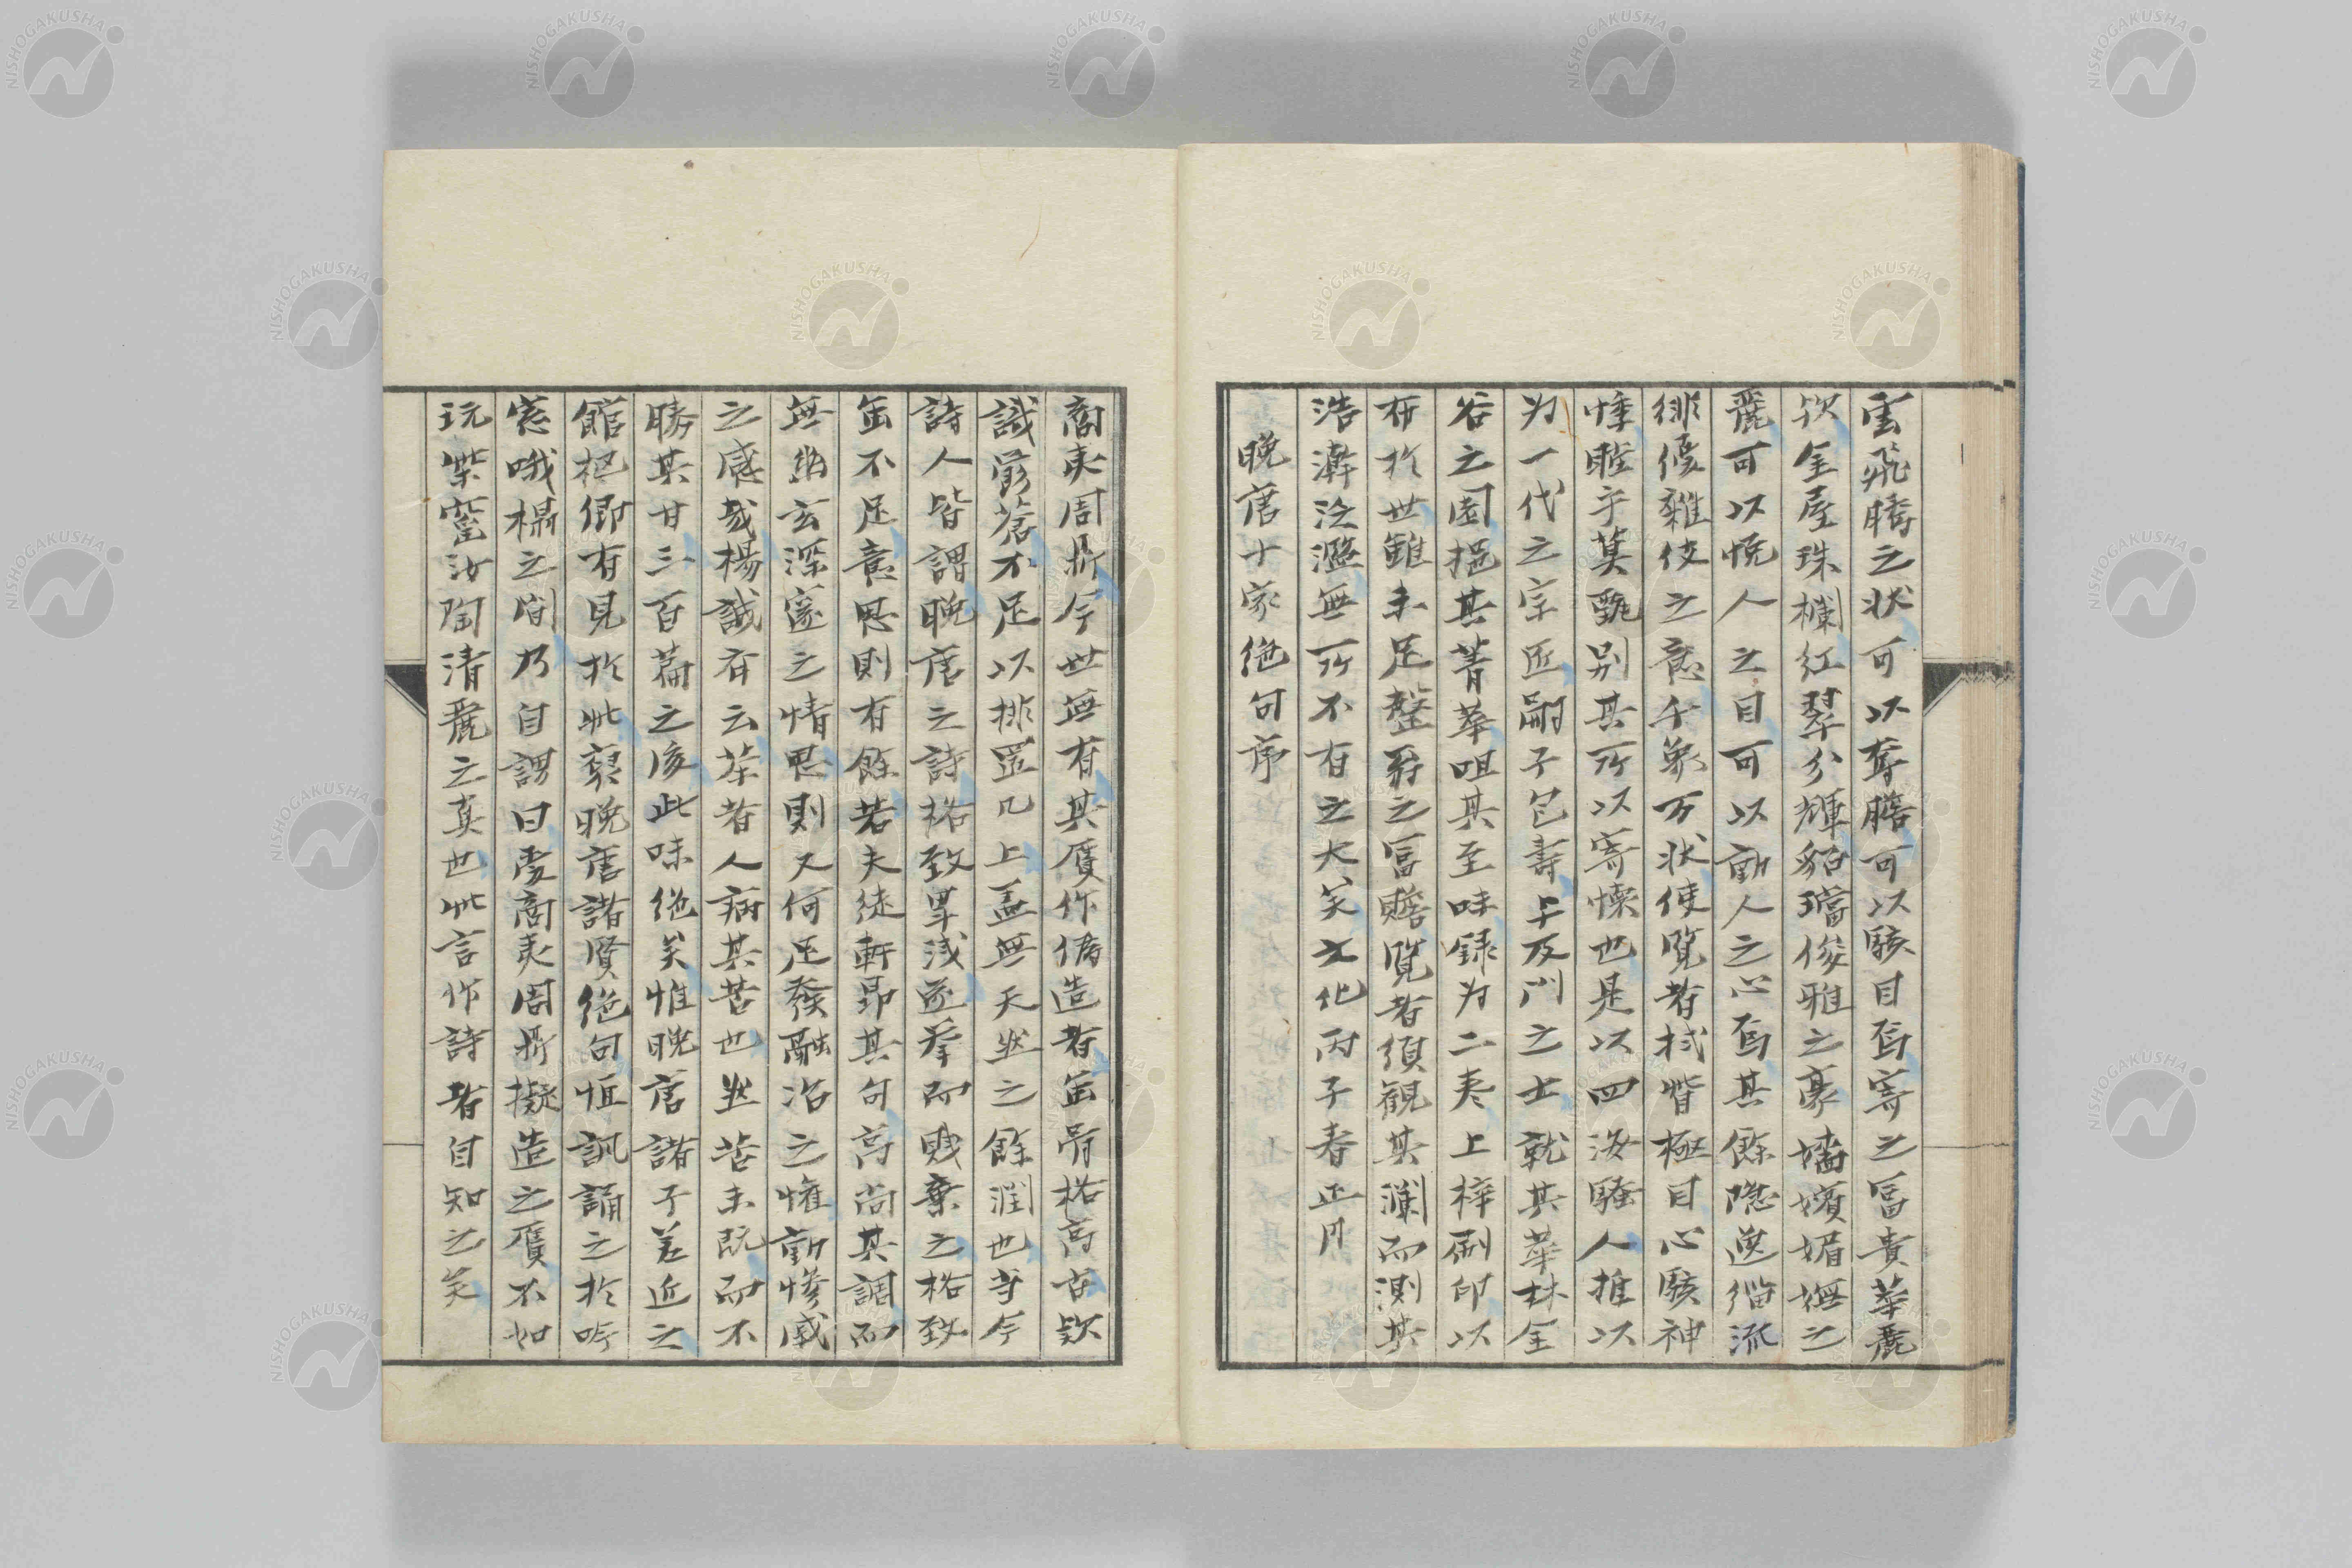 雲飛騰之状可以奪膽可以駭目焉寄之冨貴華麗
欤金屋珠欄紅翠分輝貂璫俊雅之豪嬙嬪媚嫵之
麗可以悦人之目可以動人之心焉其餘隠逸緇流
徘優雜伎之意千象万状使覧者拭眥極目心駭神
悸瞠乎莫甄别其所以寄懐也是以四海騒人推以
为一代之宗匠嗣子包壽与及门之士就其華林金
谷之園挹其菁華咀其至味録为二巻上梓刷印以
布於世雖未足罄翁之冨贍覧者須観其瀾而測其
浩瀚泛濫無所不有之大矣文化丙子春正月
晩唐十家绝句序
商夷周鼎今世無有其贋作偽造者缶骨格高古欤
識蒼不足以排置几上盖無天然之餘潤也方今
詩人皆謂晩唐之詩格致卑浅遂挙而賎棄之格致
缶不足意思則有餘若夫徒軒昂其句高尚其調而
無幽玄深邃之情思則又何足發融冶之懽動惨戚
之感哉楊誠斎云茶者人病其苦也然苦未既而不
勝其甘三百篇之後此味绝矣惟晩唐諸子差近之
館柩卿有見於此裒晩唐諸賢绝句恒諷誦之於吟
窓哦榻之間乃自謂曰愛商夷周鼎擬造之贋不如
玩柴窑汝陶清麗之真也此言作詩者自知之矣
NISHOGAKUSHA